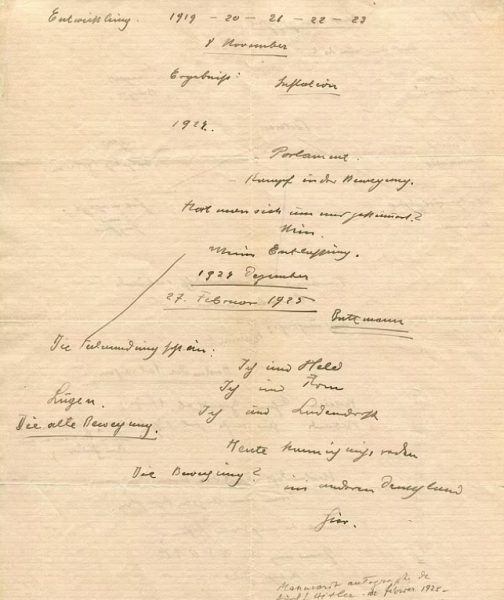 Entwicklung. 1919 - 20 - 21 - 22 - 23
9 November
Ergebniß: Inflation
1924.
Parlament.
Kampf in der Bewegung.
Hat man sich um mich gekümmert?
Nein.
Meine Entlassung.
1924 Dezember
27. Februar 1925
Buttmann
Die Verleumdung
Ich und Held
Ich und Rom
Lügen.
Ich und Ludendorff
Die alte Bewegung.
Heute kann ich reden
Die Bewegung?
im anderen Deutschland
hier.
Manuscrit autographe de
Adolf Hitler de février 1925 -